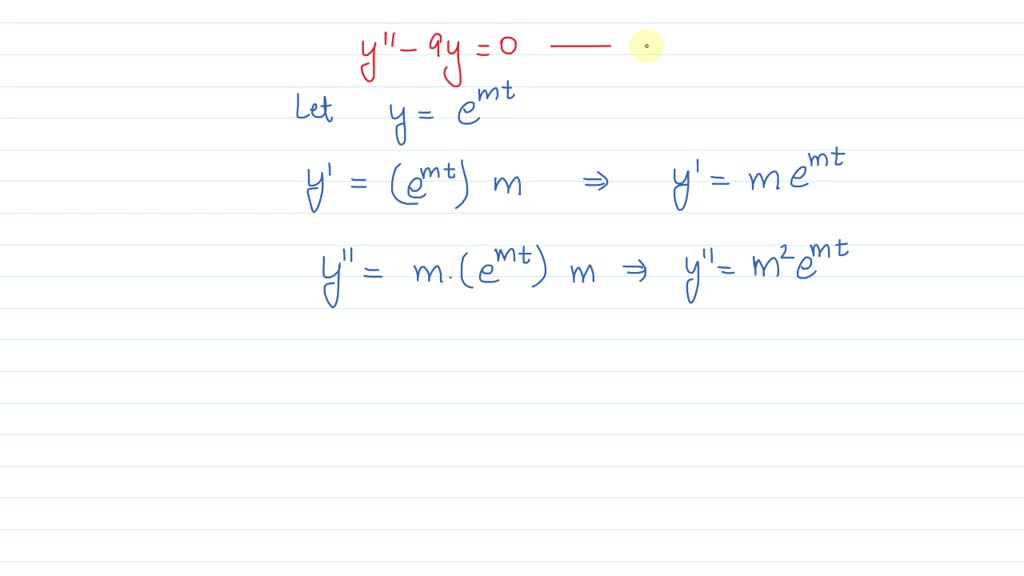 y'' - 9y = 0 ——
Let y = e^{mt}
y' = (e^{mt}) m ⇒ y' = m e^{mt}
y'' = m·(e^{mt}) m ⇒ y'' = m^2 e^{mt}